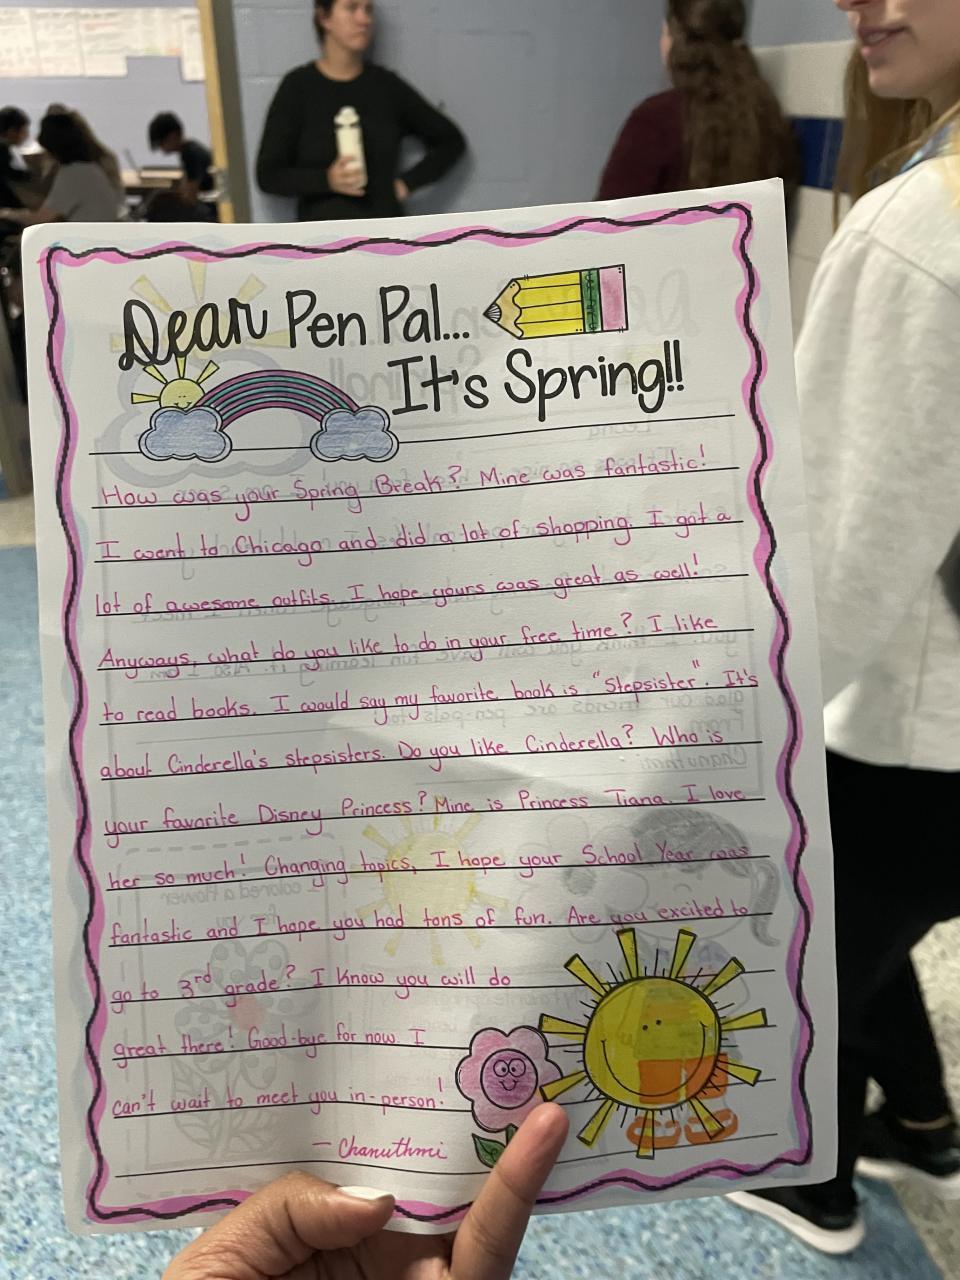 Dear Pen Pal...
It's Spring!!
How was your Spring Break? Mine was fantastic!
I went to Chicago and did a lot of shopping. I got a
lot of awesome outfits. I hope yours was great as well!
Anyways, what do you like to do in your free time? I like
to read books. I would say my favorite book is "Stepsister". It's
about Cinderella's stepsisters. Do you like Cinderella? Who is
your favorite Disney Princess? Mine is Princess Tiana. I love
her so much! Changing topics, I hope your School Year was
fantastic and I hope you had tons of fun. Are you excited to
go to 3rd grade? I know you will do
great there! Good-bye for now. I
can't wait to meet you in-person!
— Chanuthmi